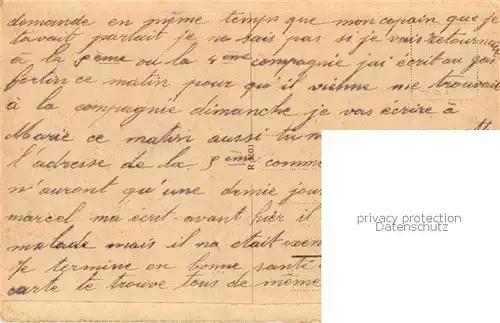 demande en même temps que mon copain que je
tavait parlait je ne sais pas si je vais retourner
à la 5ème ou la 4ème compagnie jai écrit au gas
fortin ce matin pour qu'il vienne me trouvait
à la compagnie dimanche je vas écrire à
Marie ce matin aussi tu m
l'adresse de la 5ème comme
n'auront qu'une demie jour
marcel ma écrit avant hier il
malade mais il na était exem
Je termine en bonne santé
carte te trouve tous de même
privacy protection
Datenschutz